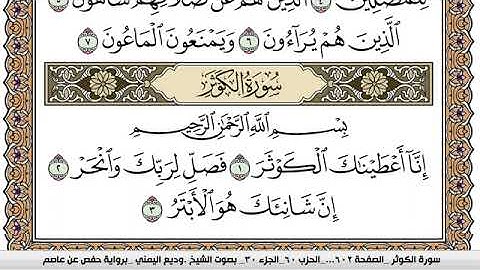 لِّلْمُصَلِّينَ ٤ ٱلَّذِينَ هُمْ عَن صَلَاتِهِمْ سَاهُونَ ٥
ٱلَّذِينَ هُمْ يُرَآءُونَ ٦ وَيَمْنَعُونَ ٱلْمَاعُونَ ٧
سُورَةُ الكَوْثَرِ
بِسْمِ ٱللَّهِ ٱلرَّحْمَٰنِ ٱلرَّحِيمِ
إِنَّآ أَعْطَيْنَٰكَ ٱلْكَوْثَرَ ١ فَصَلِّ لِرَبِّكَ وَٱنْحَرْ ٢
إِنَّ شَانِئَكَ هُوَ ٱلْأَبْتَرُ ٣
سورة الكوثر _الصفحة ٦٠٢...._الحزب ٦٠_الجزء ٣٠_ بصوت الشيخ .وديع اليمني _برواية حفص عن عاصم